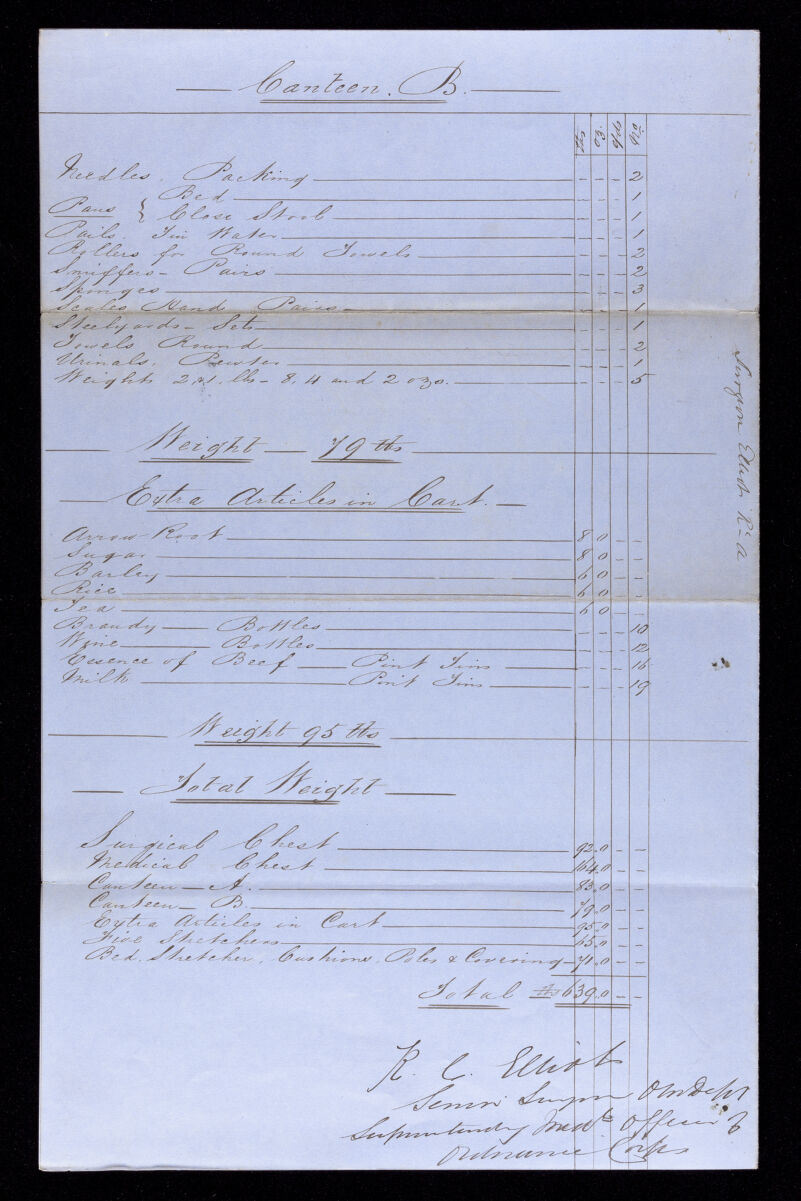 Canteen. B.
lbs oz. qts No.
Needles, Packing - - - 2
Pans { Bed - - - 1
Close Stool - - - 1
Pails, Tin Water - - - 1
Rollers for Round Towels - - - 2
Snuffers - Pairs - - - 2
Sponges - - - 3
Scales Hand Pairs - - - 1
Steelyards - Sets - - - 1
Towels Round - - - 2
Urinals, Pewter - - - 1
Weights 2 & 1 lbs - 8, 4 and 2 ozs. - - - 5
Weight 79 lbs
Extra Articles in Cart.
Arrow Root 8 0 - -
Sugar 8 0 - -
Barley 6 0 - -
Rice 6 0 - -
Tea 6 0 - -
Brandy Bottles - - - 10
Wine Bottles - - - 12
Essence of Beef Pint Tins - - - 16
Milk Pint Tins - - - 19
Weight 95 lbs
Total Weight
Surgical Chest 92.0 - -
Medical Chest 164.0 - -
Canteen - A. 83.0 - -
Canteen - B. 79.0 - -
Extra Articles in Cart 95.0 - -
Five Stretchers 55.0 - -
Bed, Stretcher, Cushions, Poles & Covering 71.0 - -
Total lbs 639.0 - -
R. C. Elliot
Senior Surgeon Ord Dept
Superintending Medl Officer of
Ordnance Corps
Surgeon Elliot Rl A